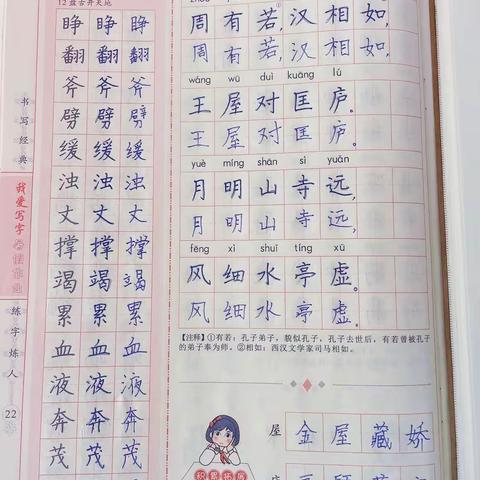 12 盘古开天地
睁 睁 睁
翻 翻 翻
斧 斧 斧
劈 劈 劈
缓 缓 缓
浊 浊 浊
丈 丈 丈
撑 撑 撑
竭 竭 竭
累 累 累
血 血 血
液 液 液
奔 奔 奔
茂 茂 茂
书写经典
我爱写字
练字炼人
22
周有若,汉相如,
周有若,汉相如,
wáng wū duì kuāng lú
王屋对匡庐。
王屋对匡庐。
yuè míng shān sì yuǎn
月明山寺远,
月明山寺远,
fēng xì shuǐ tíng xū
风细水亭虚。
风细水亭虚。
【注释】①有若:孔子弟子,貌似孔子,孔子去世后,有若曾被孔子
的弟子奉为师。②相如:西汉文学家司马相如。
积累拓展
屋 金屋藏娇